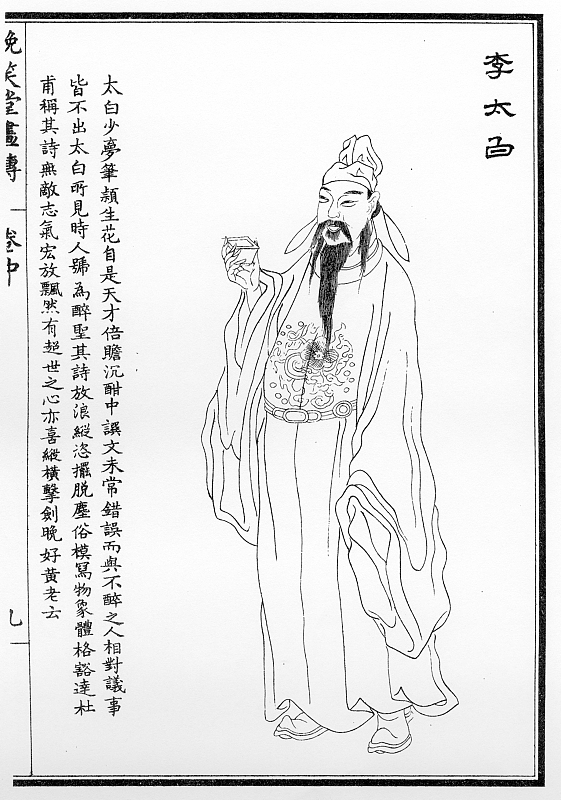 李太白
太白少夢筆頴生花自是天才倍贍沉酣中譔文未常錯誤而與不醉之人相對議事
皆不出太白所見時人號為醉聖其詩放浪縱恣擺脱塵俗模寫物象體格豁達杜
甫稱其詩無敵志氣宏放飄然有超世之心亦喜縱橫擊劍晚好黄老云
晚笑堂畫傳
卷中